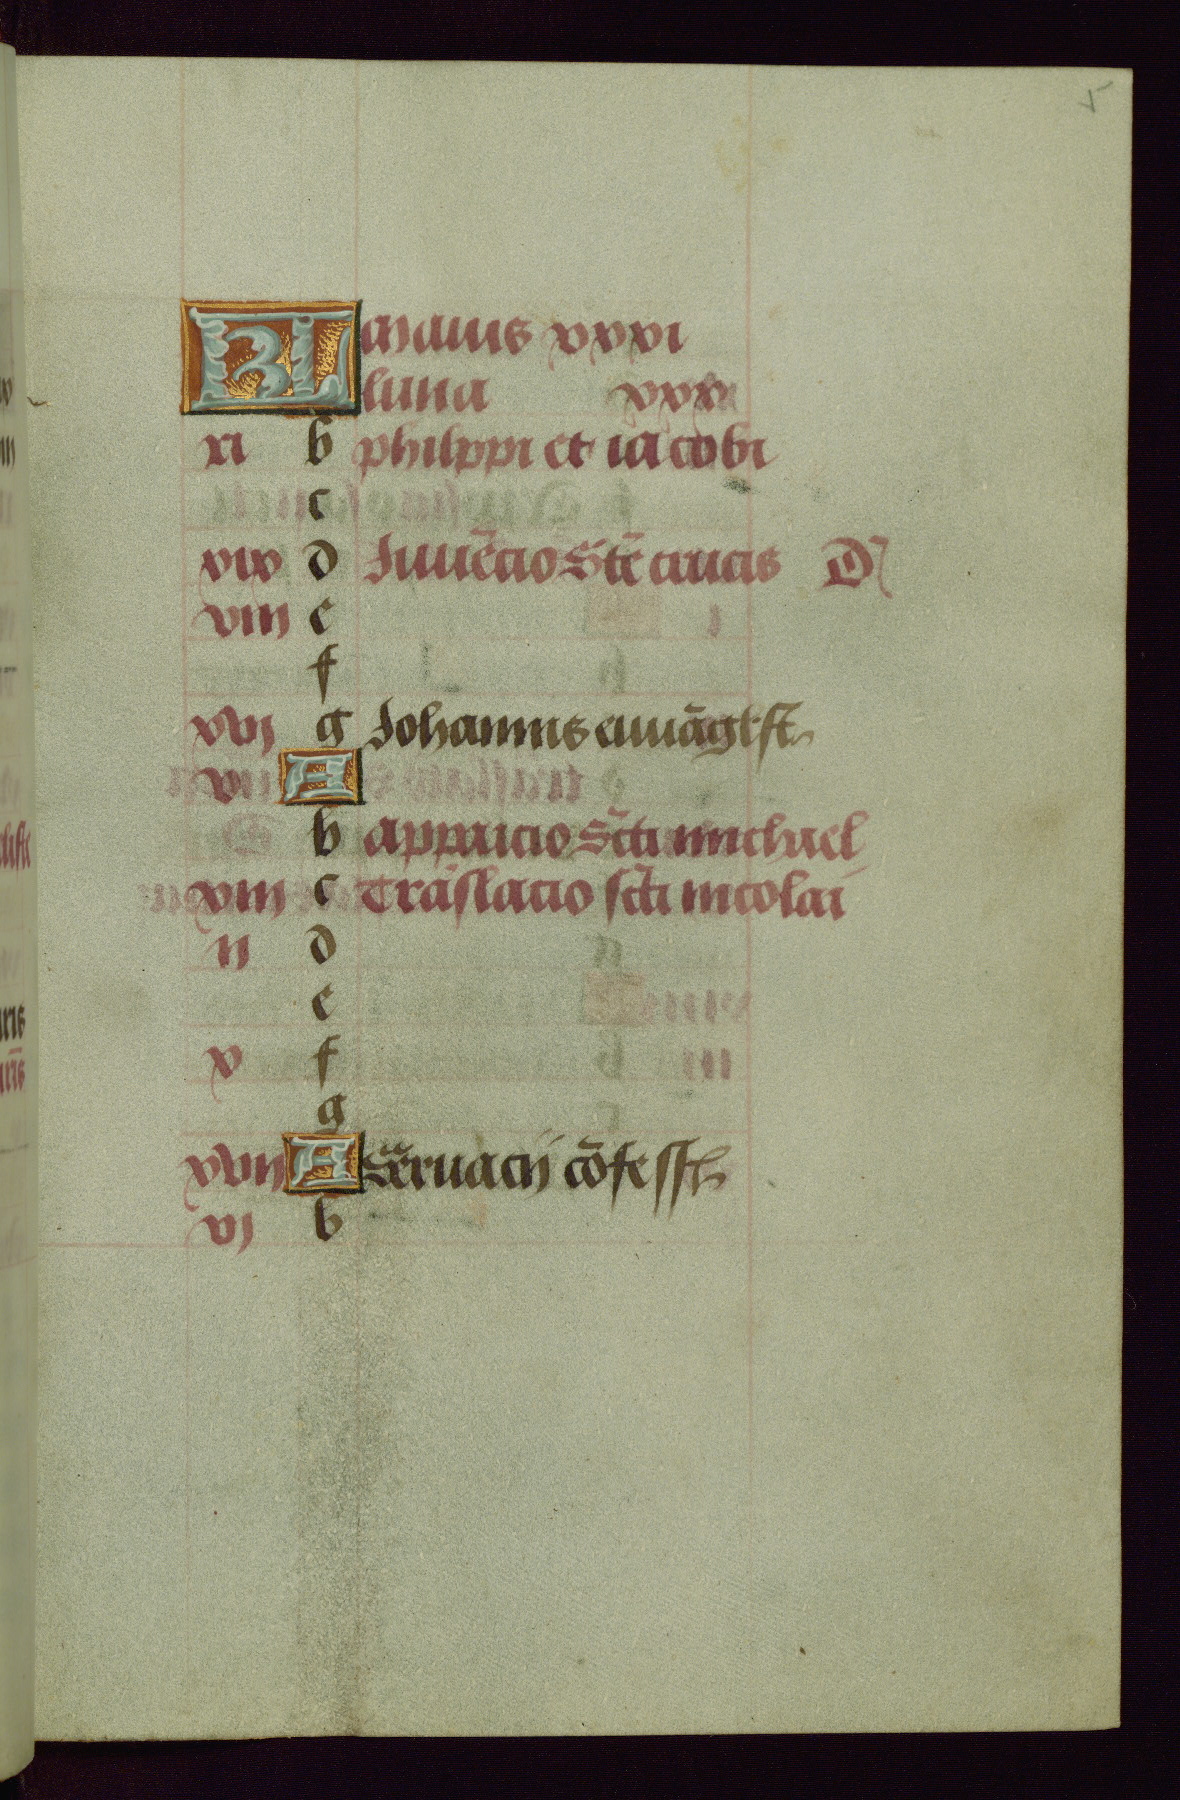 5
KL maius xxxi
luna xxx
xi b philippi et iacobi
c
xix d Inuēcio Sctē crucis D
viii e
f
xvi g Johannis ewāgelist
v A
b apparicio Scti michael
xiii c Trāslacio scti nicolai
ii d
e
x f
g
xviii A Seruacij cōfessor
vi b